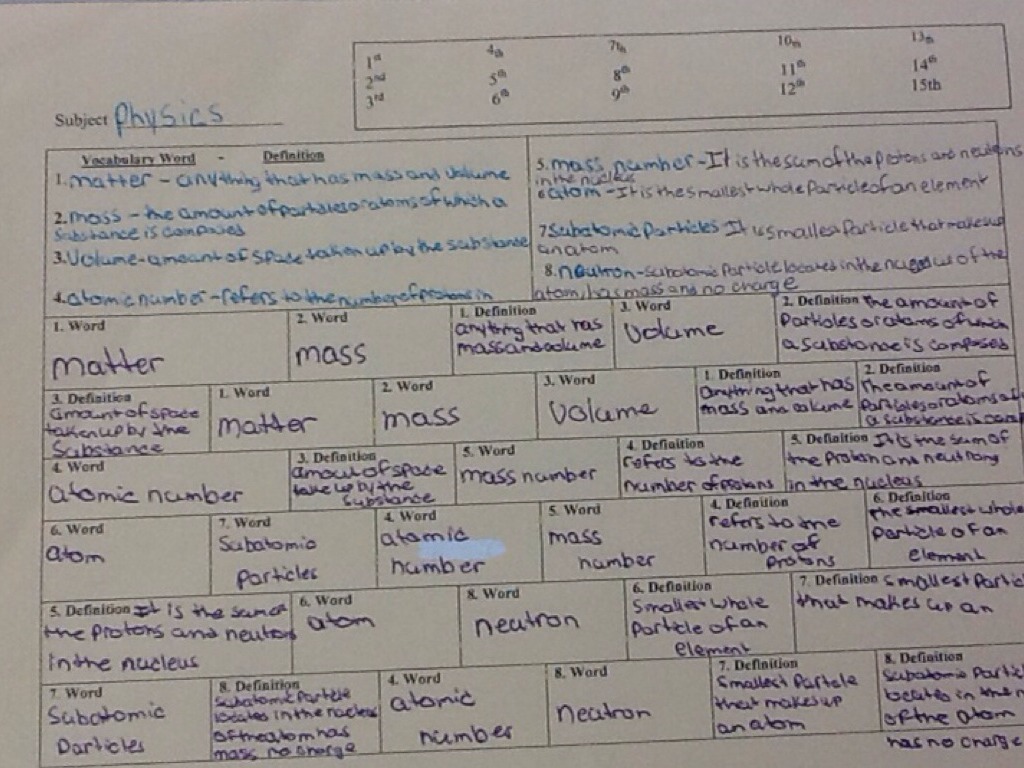 1st 4th 7th 10th 13th
2nd 5th 8th 11th 14th
3rd 6th 9th 12th 15th
Subject Physics
Vocabulary Word - Definition
1. matter - anything that has mass and volume
2. mass - the amount of particles or atoms of which a
substance is composed
3. Volume - amount of space taken up by the substance
4. atomic number - refers to the number of protons in
5. mass number - It is the sum of the protons and neutrons
in the nucleus
6. atom - It is the smallest whole Particle of an element
7 Subatomic Particles It is smallest Particle that make up
an atom
8. neutron - subatomic Particle located in the nucleus of the
atom, has mass and no charge
1. Word
matter
2. Word
mass
1. Definition
anything that has
mass and volume
3. Word
Volume
2. Definition the amount of
Particles or atoms of which
a substance is composed
3. Definition
amount of space
taken up by the
Substance
1. Word
matter
2. Word
mass
3. Word
Volume
1. Definition
anything that has
mass and volume
2. Definition
The amount of
Particles or atoms of
a substance is
4. Word
atomic number
3. Definition
amount of space
take up by the
substance
5. Word
mass number
4. Definition
refers to the
number of protons
5. Definition It is the sum of
the proton and neutrons
in the nucleus
6. Word
atom
7. Word
Subatomic
Particles
4. Word
atomic
number
5. Word
mass
number
4. Definition
refers to the
number of
Protons
6. Definition
the smallest whole
Particle of an
element
5. Definition It is the sum of
the protons and neutrons
in the nucleus
6. Word
atom
8. Word
neutron
6. Definition
Smallest whole
Particle of an
element
7. Definition Smallest Partic
that makes up an
7. Word
Subatomic
Particles
8. Definition
Subatomic Particle
locates in the nucleus
of the atom has
mass no charge
4. Word
atomic
number
8. Word
neutron
7. Definition
Smallest Partcle
that makes up
an atom
8. Definition
Subatomic Partic
locates in the n
of the atom
has no charge